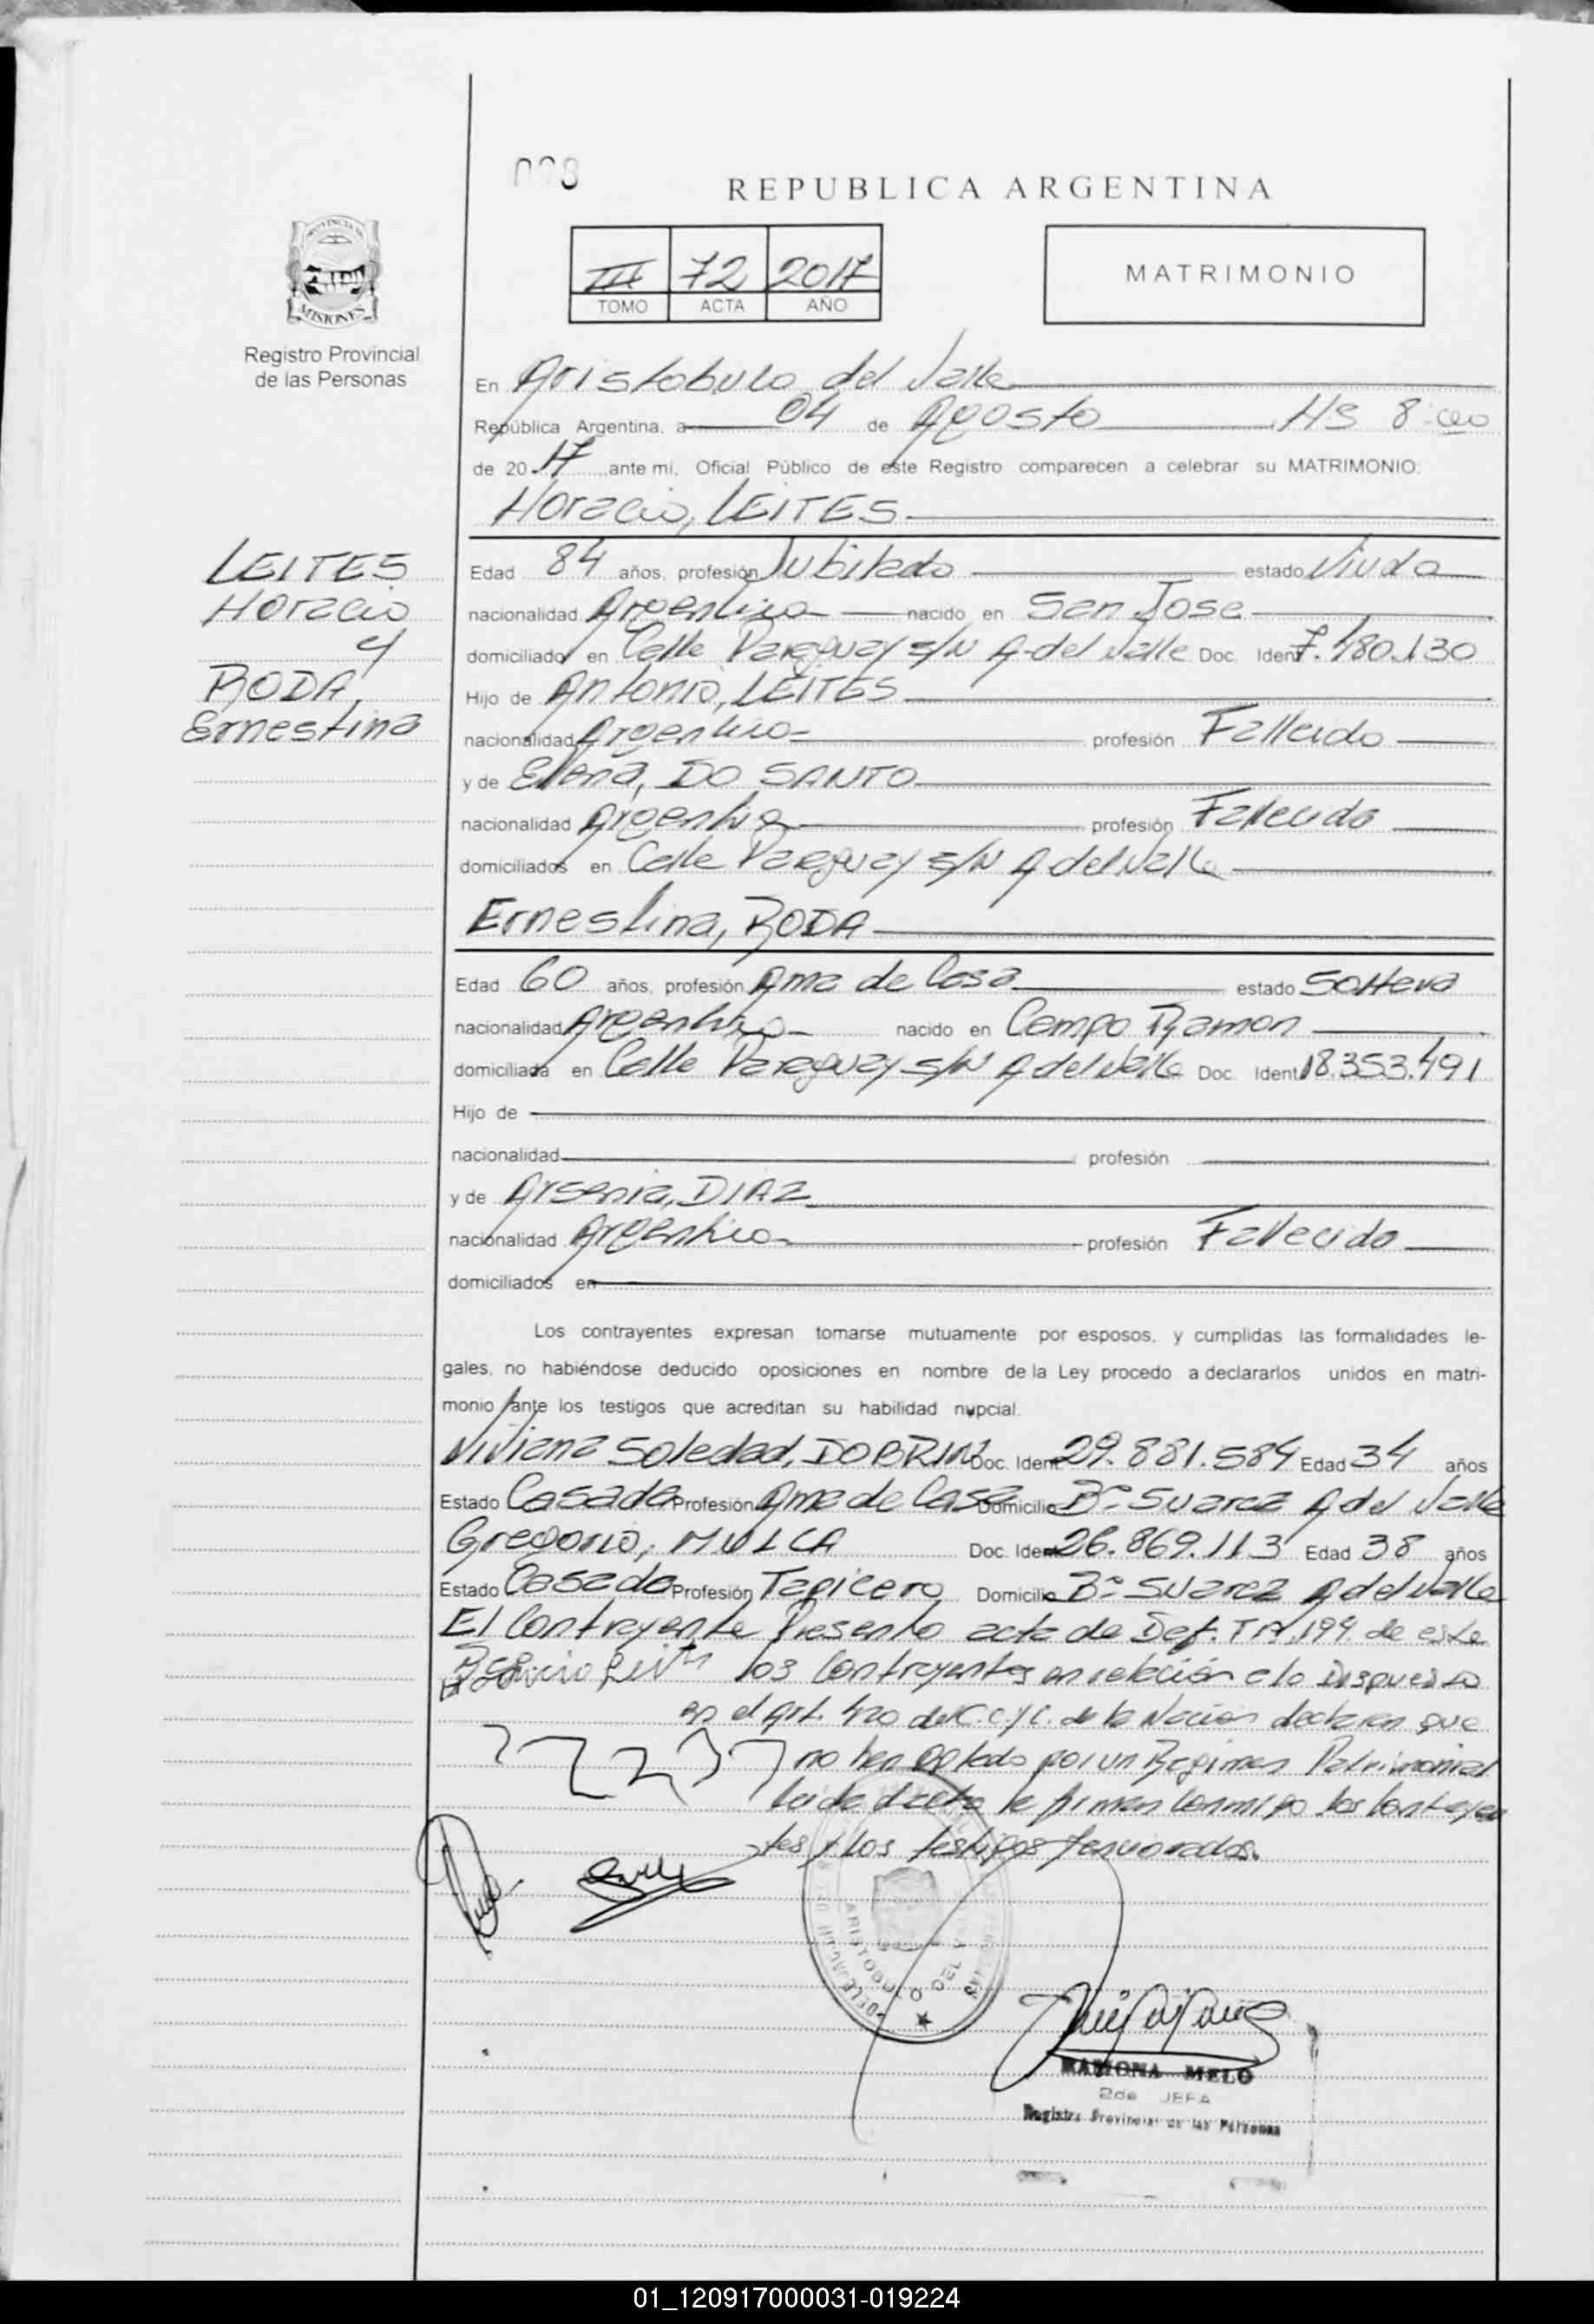 008
REPUBLICA ARGENTINA
PROVINCIA DE
MISIONES
Registro Provincial
de las Personas
III 72 2017
TOMO ACTA AÑO
MATRIMONIO
En Aristobulo del Valle
República Argentina, a 04 de Agosto HS 8:00
de 2017 ante mi, Oficial Público de este Registro comparecen a celebrar su MATRIMONIO:
Horacio, LEITES
LEITES
Horacio
y
RODA,
Ernestina
Edad 84 años, profesión Jubilado estado Viudo
nacionalidad Argentina nacido en San Jose
domiciliado en Calle Paraguay S/N A. del Valle Doc. Ident 7.480.130
Hijo de Antonio, LEITES
nacionalidad Argentino profesión Fallecido
y de Elena, DO SANTO
nacionalidad Argentina profesión Fallecido
domiciliados en Calle Paraguay S/N A del Valle
Ernestina, RODA
Edad 60 años, profesión Ama de Casa estado Soltera
nacionalidad Argentina nacido en Campo Ramon
domiciliada en Calle Paraguay S/N A del Valle Doc. Ident 18.353.491
Hijo de
nacionalidad profesión
y de Arsenia, DIAZ
nacionalidad Argentina profesión Fallecido
domiciliados en
Los contrayentes expresan tomarse mutuamente por esposos, y cumplidas las formalidades le-
gales, no habiéndose deducido oposiciones en nombre de la Ley procedo a declararlos unidos en matri-
monio ante los testigos que acreditan su habilidad nupcial.
Viviana Soledad, DOBRIN Doc. Ident 29.881.584 Edad 34 años
Estado Casada Profesión Ama de Casa Domicilio Bº Suarez A del Valle
Gregorio, MULCA Doc. Ident 26.869.113 Edad 38 años
Estado Casado Profesión Tapicero Domicilio Bº Suarez A del Valle
El Contrayente Presento acta de Def. 199 de este
los Contrayentes en relación a lo Dispuesto
en el Art. 420 del C.C y C. de la Nacion declaran que
no han Optado por un Regimen Patrimonial
Leida la firman conmigo los Contrayen
tes y los testigos
ARISTOBULO DEL
RAMONA MELO
2da JEFA
Registro Provincial de las Personas
01_120917000031-019224